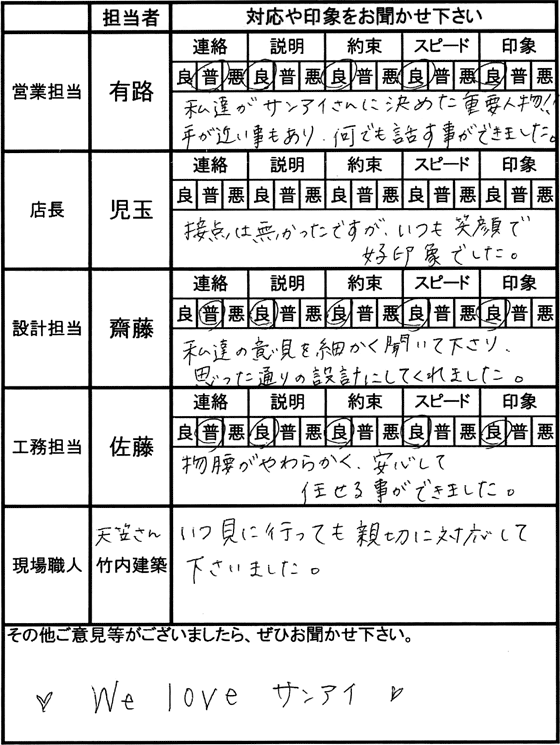 担当者 対応や印象をお聞かせ下さい
営業担当 有路
連絡 説明 約束 スピード 印象
良 普 悪 良 普 悪 良 普 悪 良 普 悪 良 普 悪
私達がサンアイさんに決めた重要人物!!
年が近い事もあり、何でも話す事ができました。
店長 児玉
連絡 説明 約束 スピード 印象
良 普 悪 良 普 悪 良 普 悪 良 普 悪 良 普 悪
接点は無かったですが、いつも笑顔で
好印象でした。
設計担当 齋藤
連絡 説明 約束 スピード 印象
良 普 悪 良 普 悪 良 普 悪 良 普 悪 良 普 悪
私達の意見を細かく聞いて下さり、
思った通りの設計にしてくれました。
工務担当 佐藤
連絡 説明 約束 スピード 印象
良 普 悪 良 普 悪 良 普 悪 良 普 悪 良 普 悪
物腰がやわらかく、安心して
任せる事ができました。
現場職人 天笠さん
竹内建築
いつ見に行っても親切に対応して
下さいました。
その他ご意見等がございましたら、ぜひお聞かせ下さい。
We love サンアイ